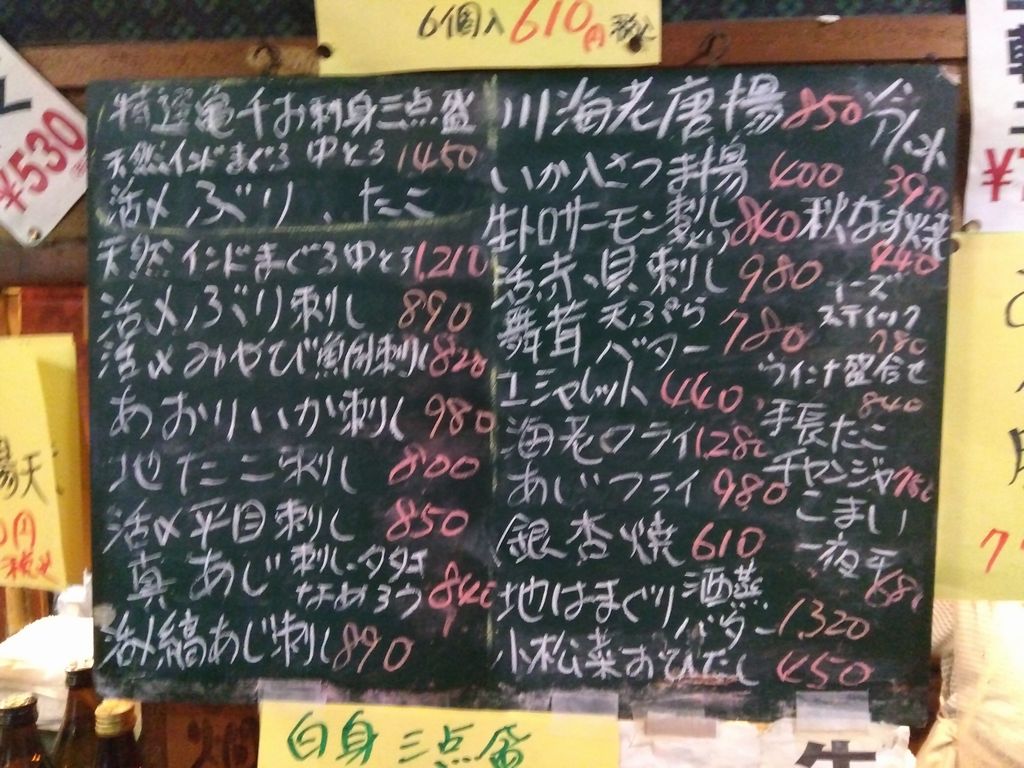 6個入610円税込
¥530
特選亀千お刺身三点盛
天然インドまぐろ 中とろ 1,450
活〆ぶり、たこ
天然インドまぐろ中とろ 1,210
活〆ぶり刺し 890
活〆みやび鯛刺し 820
あおりいか刺し 980
地たこ刺し 800
活〆平目刺し 850
真あじ 刺し・タタキ
なめろう 840
活〆縞あじ刺し 890
川海老唐揚 850
いか入さつま揚 400
生トロサーモン刺し 840
活赤貝刺し 980
舞茸 天ぷら
バター 780
エシャレット 440
海老フライ 1,280
あじフライ 980
銀杏焼 610
地はまぐり 酒蒸
バター 1,320
小松菜おひたし 450
冷や
390
秋なす焼
440
チーズ
スティック
780
ウインナ盛合せ
840
手長たこ
チャンジャ 750
こまい
一夜干
680
円
税込
白身三点盛